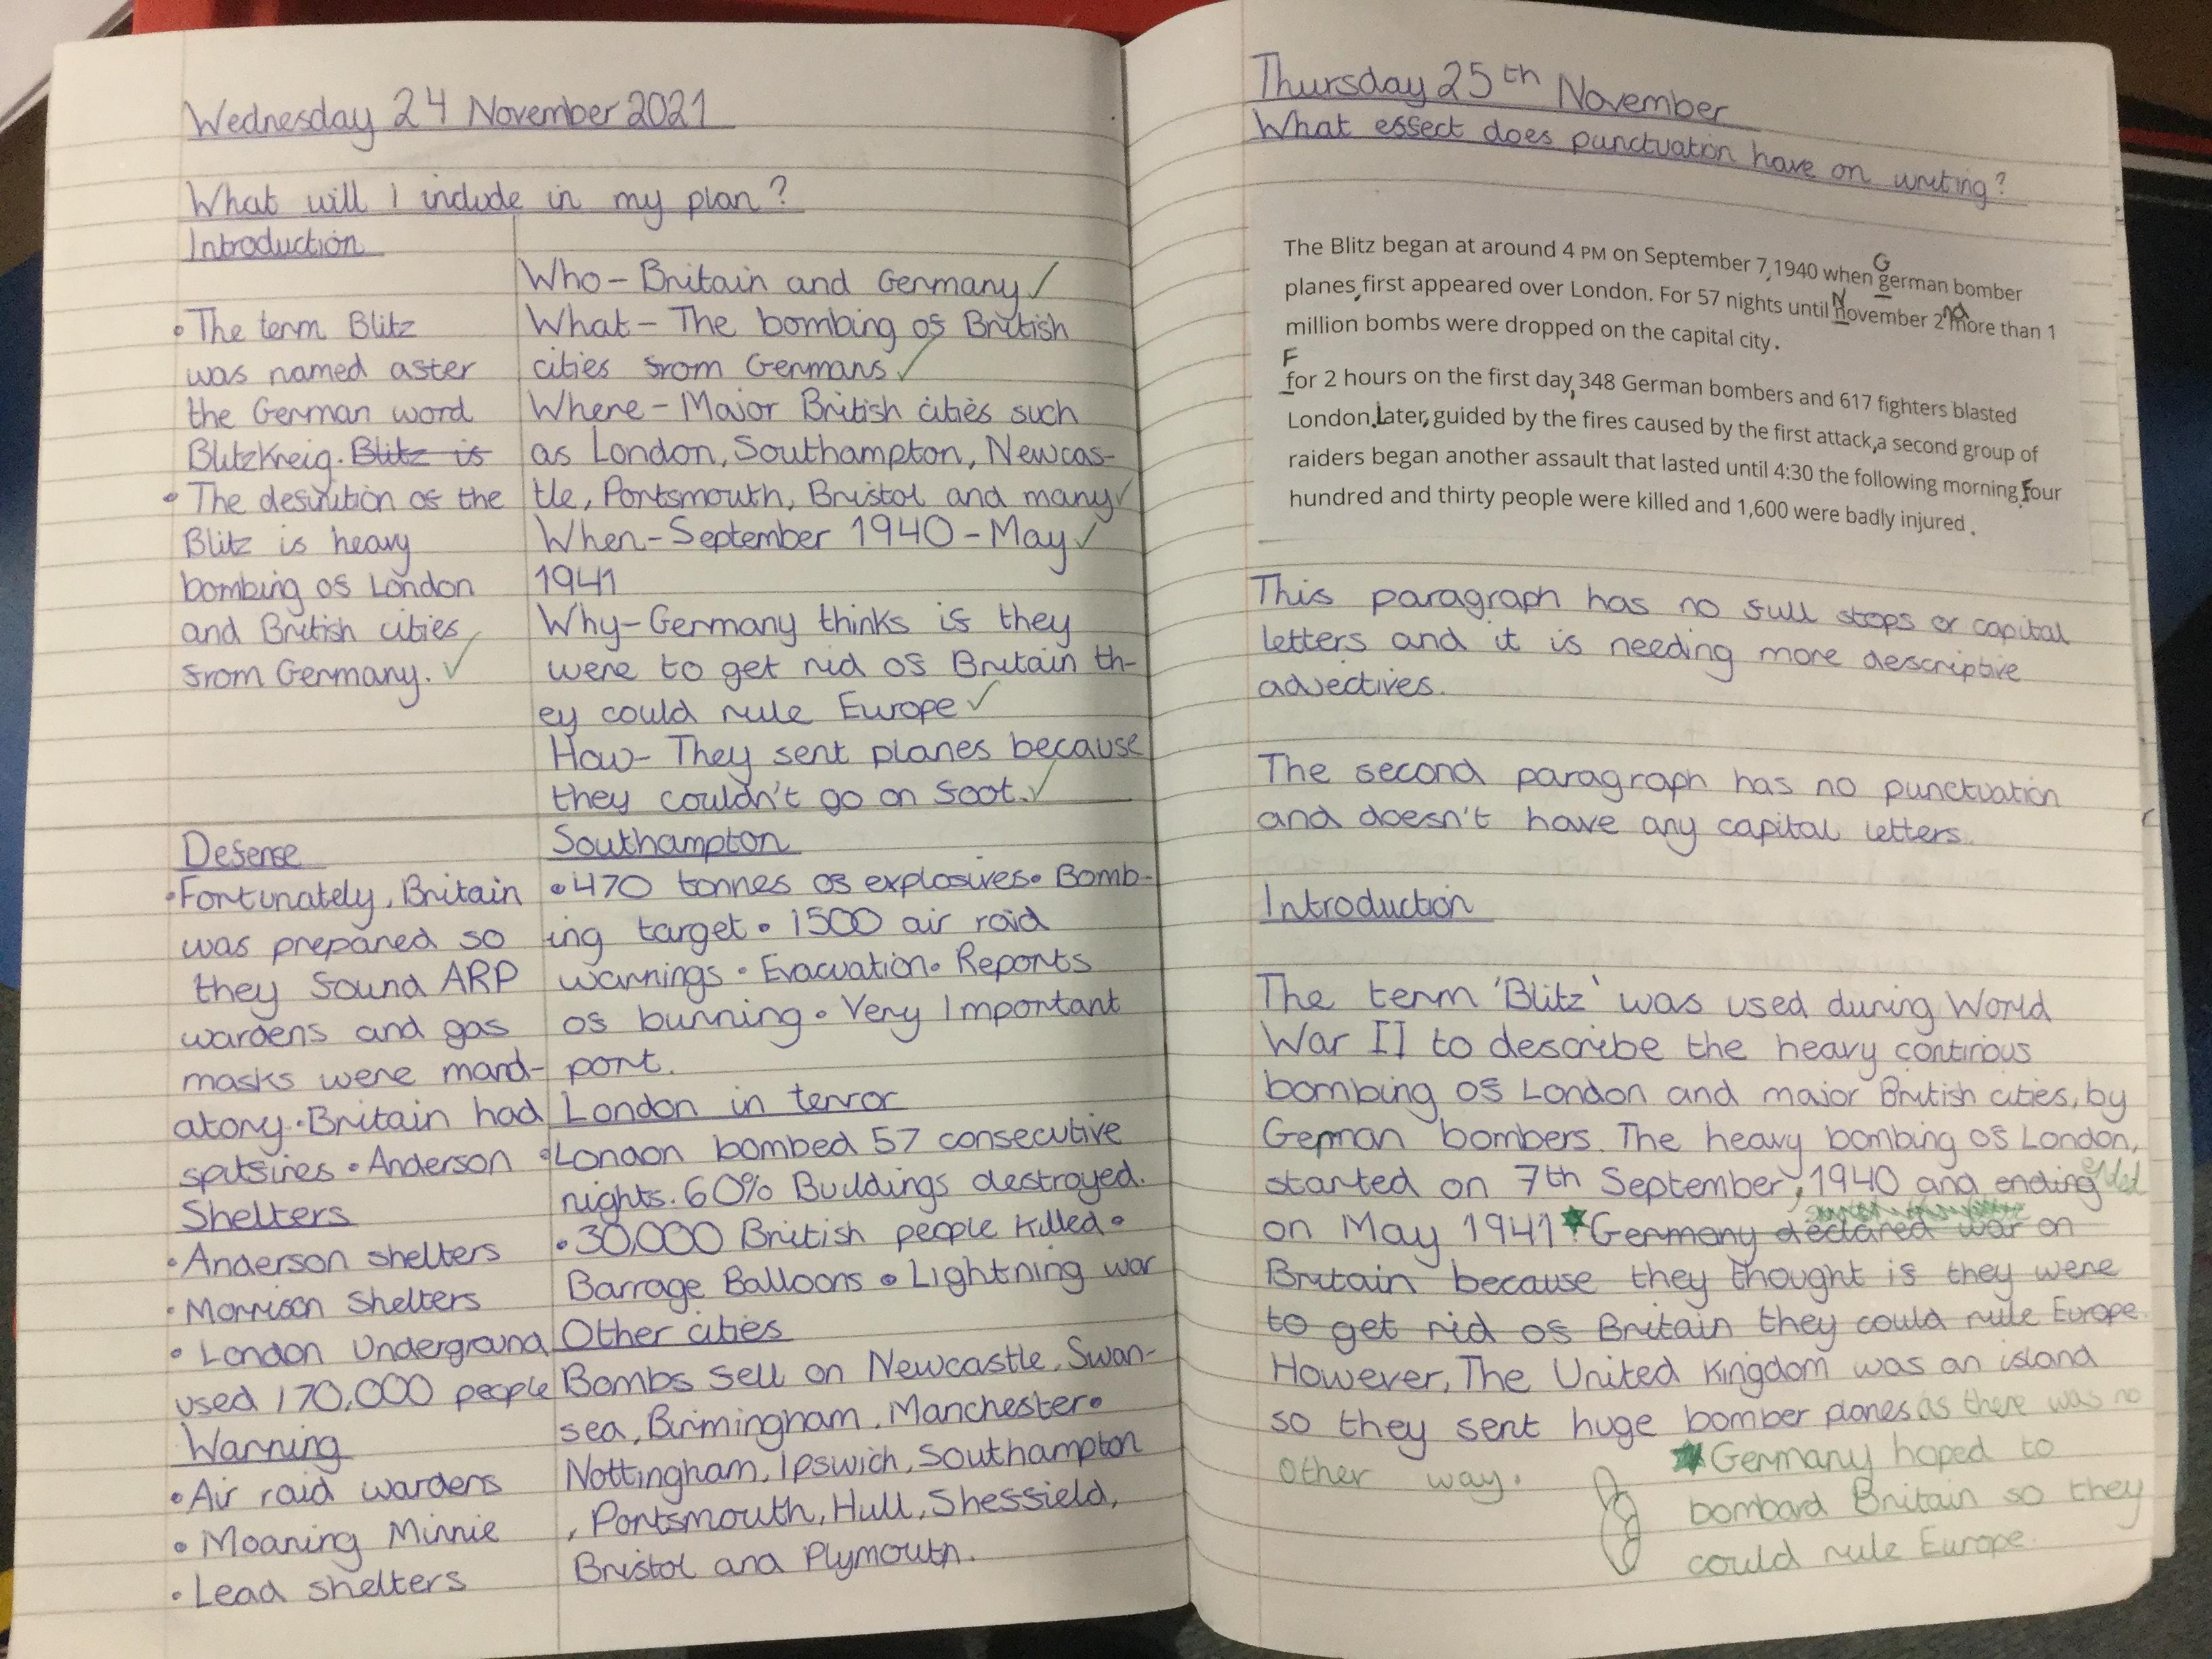 Wednesday 24 November 2021
What will I include in my plan?
Introduction
• The term Blitz
was named after
the German word
BlitzKreig. Blitz is
• The definition of the
Blitz is heavy
bombing of London
and British cities
from Germany.
Who- Britain and Germany
What- The bombing of British
cities from Germans
Where- Major British cities such
as London, Southampton, Newcas-
tle, Portsmouth, Bristol and many
When- September 1940 - May
1941
Why- Germany thinks if they
were to get rid of Britain th-
ey could rule Europe
How- They sent planes because
they couldn't go on foot.
Defense
• Fortunately, Britain
was prepared so
they found ARP
wardens and gas
masks were mand-
atory • Britain had
spitfires • Anderson
Shelters
• Anderson shelters
• Morrison Shelters
• London Underground
used 170,000 people
Warning
• Air raid wardens
• Moaning Minnie
• Lead shelters
Southampton
• 470 tonnes of explosives • Bomb-
ing target • 1500 air raid
warnings • Evacuation • Reports
of burning • Very Important
port.
London in terror
• London bombed 57 consecutive
nights. 60% Buildings destroyed.
• 30,000 British people killed •
Barrage Balloons • Lightning war
Other cities
Bombs fell on Newcastle, Swan-
sea, Birmingham, Manchester •
Nottingham, Ipswich, Southampton
, Portsmouth, Hull, Sheffield,
Bristol and Plymouth.
Thursday 25th November
What effect does punctuation have on writing?
The Blitz began at around 4 PM on September 7, 1940 when German bomber
planes, first appeared over London. For 57 nights until November 2nd more than 1
million bombs were dropped on the capital city.
For 2 hours on the first day, 348 German bombers and 617 fighters blasted
London. Later, guided by the fires caused by the first attack, a second group of
raiders began another assault that lasted until 4:30 the following morning. Four
hundred and thirty people were killed and 1,600 were badly injured.
This paragraph has no full stops or capital
letters and it is needing more descriptive
adjectives.
The second paragraph has no punctuation
and doesn't have any capital letters.
Introduction
The term 'Blitz' was used during World
War II to describe the heavy continous
bombing of London and major British cities, by
German bombers. The heavy bombing of London,
started on 7th September, 1940 and ending ended
on May 1941. Germany declared war on
Britain because they thought if they were
to get rid of Britain they could rule Europe.
However, The United Kingdom was an island
so they sent huge bomber planes as there was no
other way.
Germany hoped to
bombard Britain so they
could rule Europe.